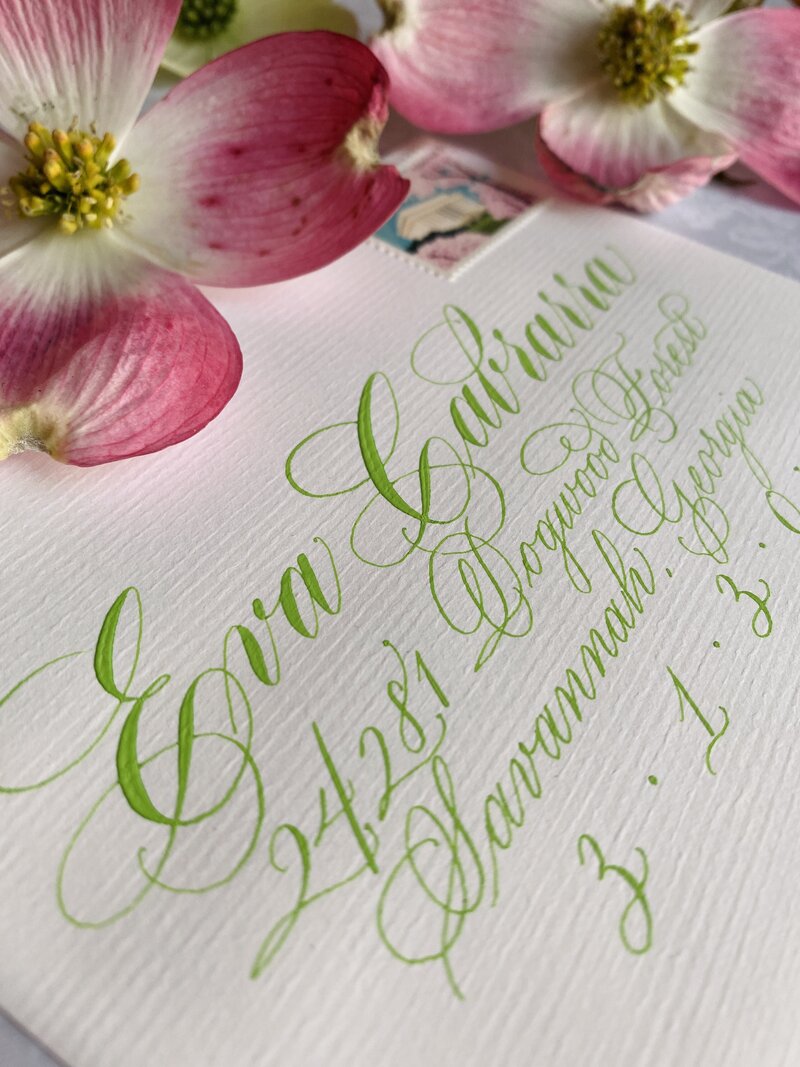 Eva
24281 Dogwood Forest
Savannah, Georgia
3 . 1 . 3 .